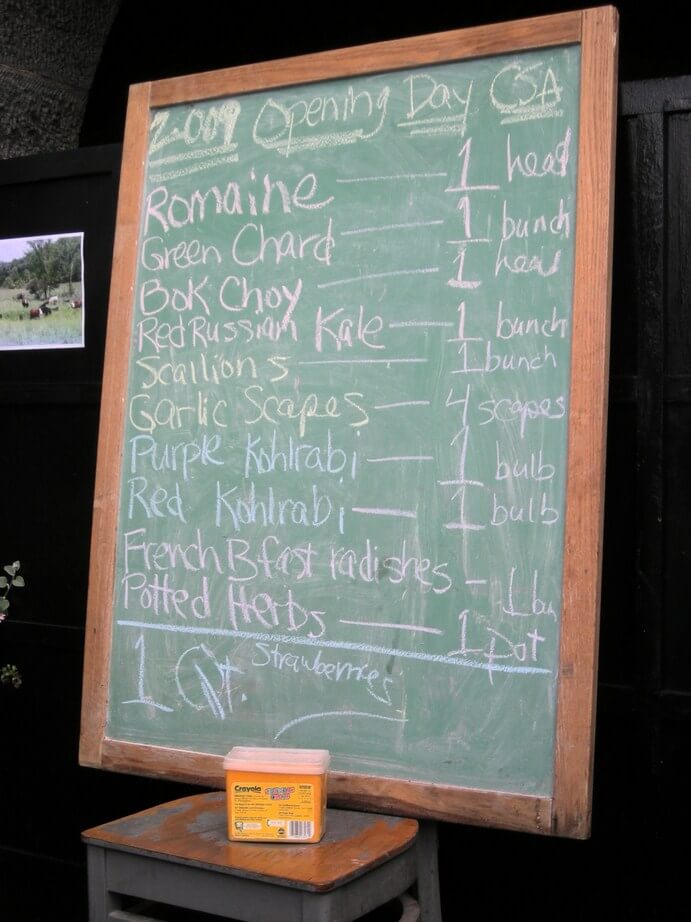 2009 Opening Day CSA
Romaine — 1 head
Green Chard — 1 bunch
Bok Choy — 1 head
Red Russian Kale — 1 bunch
Scallions — 1 bunch
Garlic Scapes — 4 scapes
Purple Kohlrabi — 1 bulb
Red Kohlrabi — 1 bulb
French Bfast radishes — 1 bu
Potted Herbs — 1 pot
1 Qt. Strawberries
Crayola